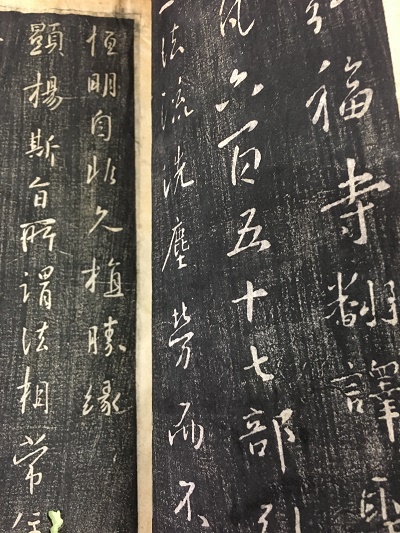 弘福寺翻譯聖
凡六百五十七部引
法流洗塵勞而不
恒明自非久植勝緣
顯揚斯旨所謂法相常住